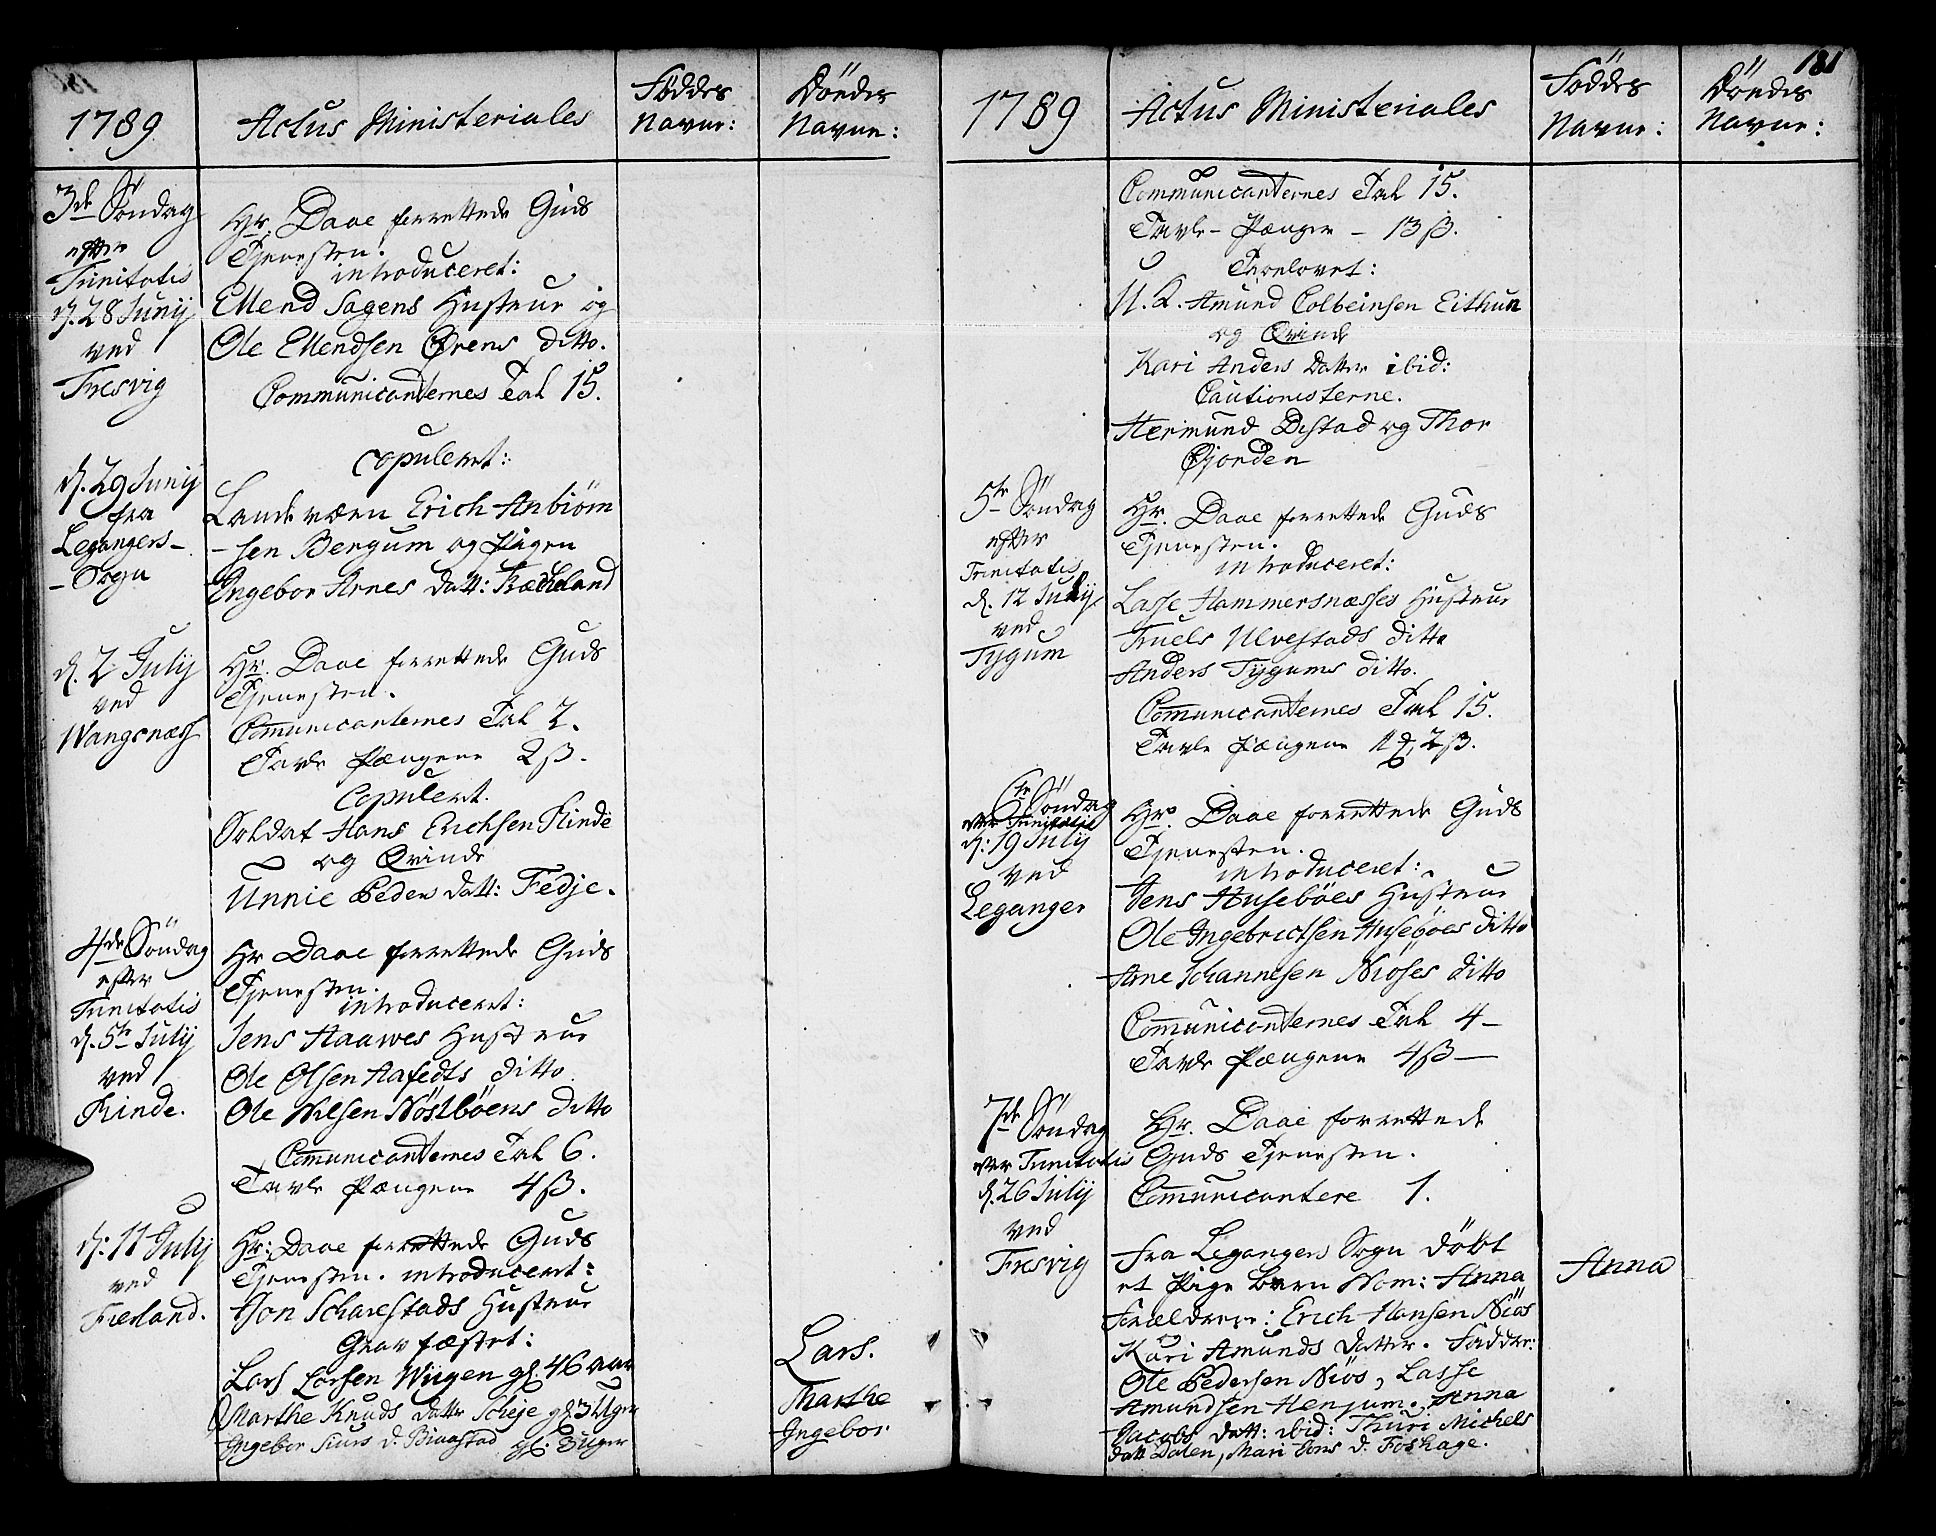 1789
Actus Ministeriales
Föddes Navne:
Döedes Navne:
3de Söndag
efter
Trinitatis
d. 28 Junij
ved
Fresvig
Hr. Daae forrettede Guds
Tjenesten.
introduceret:
Ellend Sagens Hustrue og
Ole Ellendsen Ørens ditto.
Communicanternes Tal 15.
d. 29 Junij
fra
Legangers-
-Sogn
Copuleret:
Landeværn Erich Anbiörn
-sen Bergum og Pigen
Ingebor Arnes Datt:
d. 2 July
ved
Wangsnæss
Hr. Daae forrettede Guds
Tjenesten.
Comunicanternes Tal 2.
Tavle Pængene 2 ß.
Copuleret.
Soldat Hans Erichsen Rinde
og Qvinde
Unnie Peders Datt: Fedje.
4de Söndag
efter
Trinitatis
d. 5te July
ved
Rinde.
Hr Daae forrettede Guds
Tjenesten.
introduceret:
Jens Haawes Hustrue
Ole Olsen Aafedts ditto
Ole Nilsen Nöstböens ditto
Comunicanternes Tal 6.
Tavle Pængene 4 ß.
d: 11 July
ved
Fierland.
Hr: Daae forrettede Guds
Tjenesten. introduceret:
Jon Scharestads Hustrue
Gravfæstet:
Lars Larsen Wiigen gl. 46 aar
Marthe Knuds Datter gl 3 Uger
Ingebor Siurs D. gl: 3 Uger
Lars.
Marthe
Ingebor
181
1789
Actus Ministeriales
Föddes Navne:
Döedes Navne:
Communicanternes Tal 15.
Tavle-Pænger - 13 ß.
Troelovet:
U. K. Amund Colbeinsen Eithun
og Qvinde
Kari Anders Datter ibid:
Cautionisterne.
Hermund Distad og Thor
Gjorden
5te Söndag
efter
Trinitatis
d. 12 July
ved
Tygum
Hr. Daae forrettede Guds
Tjenesten.
introduceret:
Lasse Hammersnæsses Hustrue
Truels Ulvestads ditto
Anders Tygums ditto.
Comunicanternes Tal 15.
Tavle Pængene 1 2 ß.
6te Söndag
efter Trinitatis
d: 19 July
ved
Leganger
Hr. Daae forrettede Guds
Tjenesten.
introduceret:
Jens Huseböes Hustrue
Ole Ingebrictsen Huseböes ditto
Arne Johannesen Niöses ditto
Comunicanternes Tal 4-
Tavle Pængene 4 ß -
7de Söndag
efter Trinitatis
d. 26 July
ved
Fresvig
Hr. Daae forrettede
Guds Tjenesten.
Comunicantere 1.
Fra Legangers Sogn döbt
et Pige Barn Nom: Anna
Forældrene: Erich Hansen Niös
Kari Amunds Datter. Fadder:
Ole Pedersen Niös, Lasse
Amundsen Henjum, Anna
Jacobs Datt: ibid: Thuri Michels
Datt Dalen, Mari Jons D. Foshage.
Anna